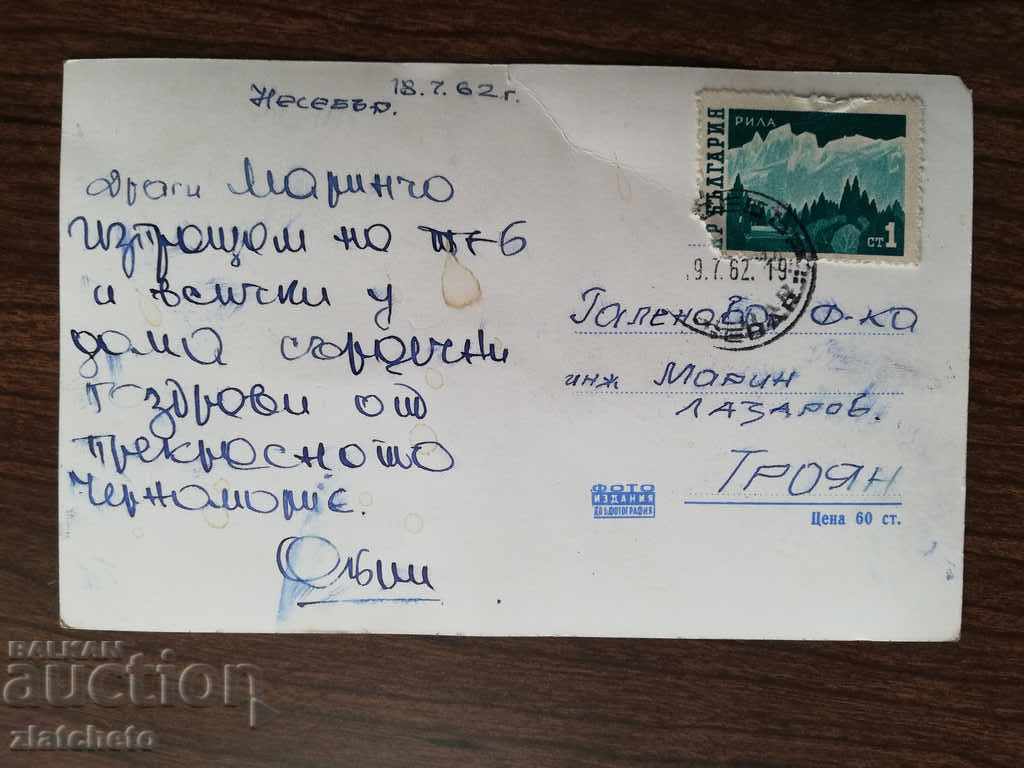 18.7.62 г.
Несебър.
Драги Маринчо
Изпращам на теб
и всички у
дома сърдечни
поздрави от
прекрасното
Черноморие.
НР БЪЛГАРИЯ
РИЛА
СТ 1
9.7.62. 19
Галенова ф-ка
инж Марин
Лазаров.
ТРОЯН
ФОТО
ИЗДАНИЯ
ДП БЪЛФОТОГРАФИЯ
Цена 60 ст.
BALKAN
auction
zlatcheto